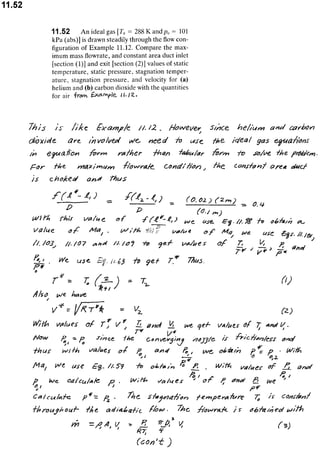 11.52
11.52 An ideal gas [T₀ = 288 K and p₀ = 101
kPa (abs)] is drawn steadily through the flow con-
figuration of Example 11.12. Compare the max-
imum mass flowrate, and constant area duct inlet
[section (1)] and exit [section (2)] values of static
temperature, static pressure, stagnation temper-
ature, stagnation pressure, and velocity for (a)
helium and (b) carbon dioxide with the quantities
for air from Example 11.12.
This is like Example 11.12. However, since helium and carbon
dioxide are involved we need to use the ideal gas equations
in equation form rather than tabular form to solve the problem.
For the maximum flowrate condition, the constant area duct
is choked and thus
f(ℓ* - ℓ₁)/D = f(ℓ₂ - ℓ₁)/D = (0.02)(2m)/(0.1m) = 0.4
With this value of f(ℓ* - ℓ₁)/D we use Eq. 11.98 to obtain a
value of Ma₁. With value of Ma₁ we use Eqs.
11.103, 11.107 and 11.109 to get values of T₁/T*, V₁/V*, P₁/P* and
P₀,₁/P₀*. We use Eq. 11.63 to get T*. Thus.
T* = T₀ (2/(k+1)) = T₂ (1)
Also, we have
V* = √(RT*k) = V₂ (2)
With values of T*, V*, T₁/T* and V₁/V* we get values of T₁ and V₁.
Now P₀,₁ = P₀ since the converging nozzle is frictionless and
thus with values of P₀,₁ and P₀,₁/P₀* we obtain P₀* = P₀,₂. With
Ma₁ we use Eq. 11.59 to obtain P₁/P₀,₁. With values of P₁/P₀,₁ and
P₀,₁ we calculate P₁. With values of P₁ and P₁/P* we
calculate P* = P₂. The stagnation temperature T₀ is constant
throughout the adiabatic flow. The flowrate is obtained with
ṁ = ρ₁A₁V₁ = P₁/RT₁ πD₁²/4 V₁ (3)
(con't)